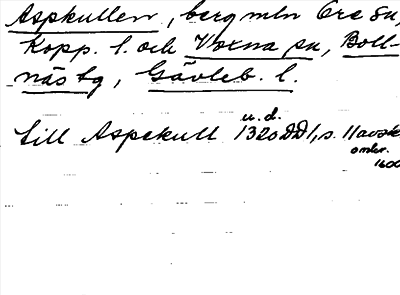 Aspkullen, berg mln Ore sn,
Kopp. l. och Voxna sn, Boll-
näs tg, Gävleb. l.
u. d.
till Aspekull 1320 DD1, s. 11 avskr
omkr.
1600